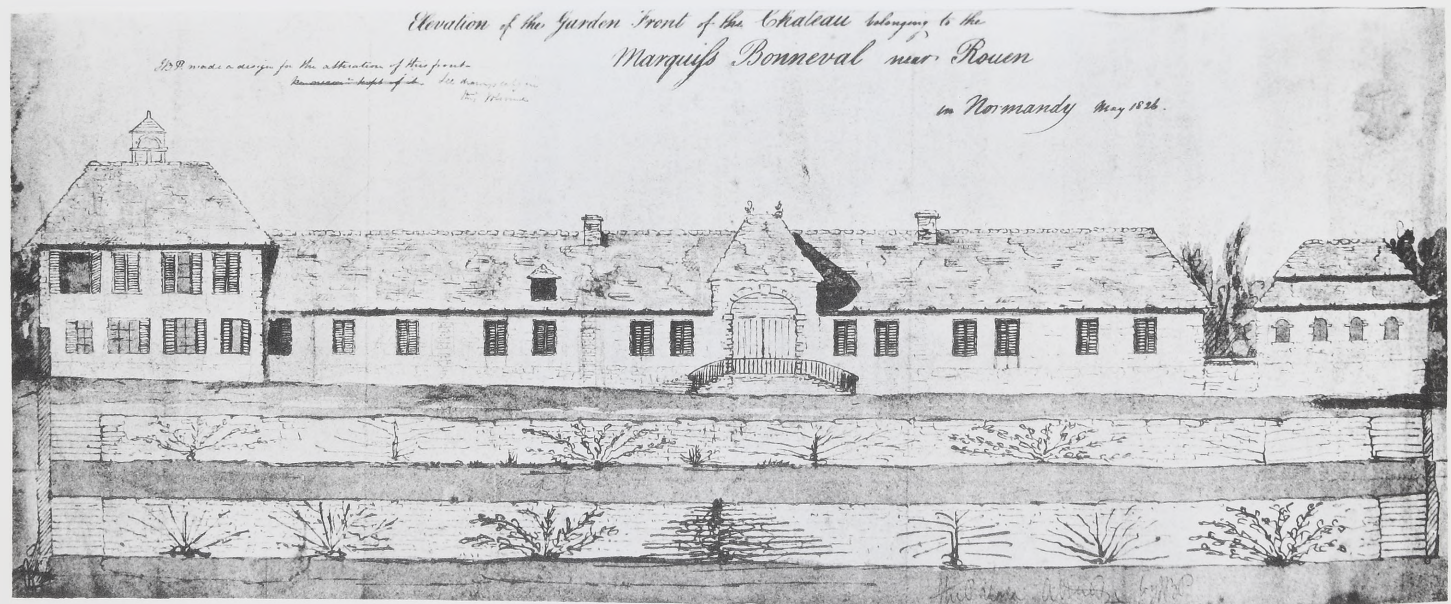 Elevation of the Garden Front of the Chateau belonging to the
Marquiſs Bonneval near Rouen
in Normandy May 1826.
made a design for the alteration of this front
kept of it See drawing
this